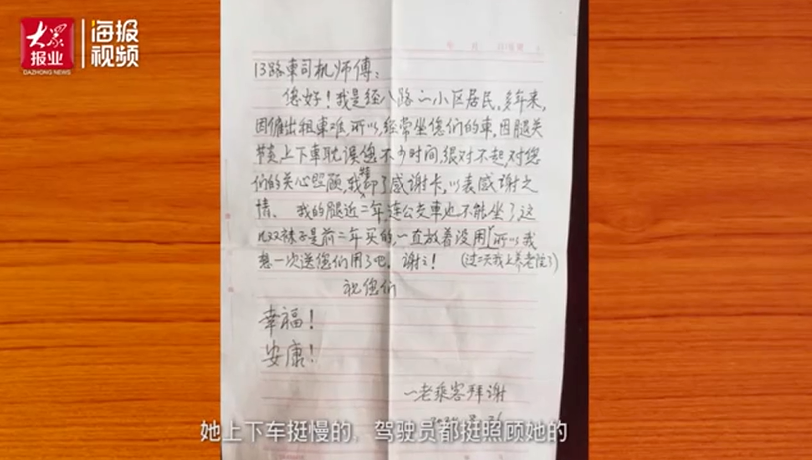 大众报业
DAZHONG NEWS
海报视频
13路車司机师傅:
您好!我是经八路一小区居民,多年来,
因僱出租車难,所以,经常坐您们的車,因腿关
节炎上下車耽误您不少时间,很对不起,对您
们的关心照顾,我特印了感谢卡,以表感谢之
情、我的腿近二年連公交車也不能坐了,这
几双袜子是前二年买的,一直放着没用,所以我
想一次送您们用了吧。谢之!(过二天我上养老院了)
祝您们
幸福!
安康!
一老乘客拜谢
她上下车挺慢的,驾驶员都挺照顾她的